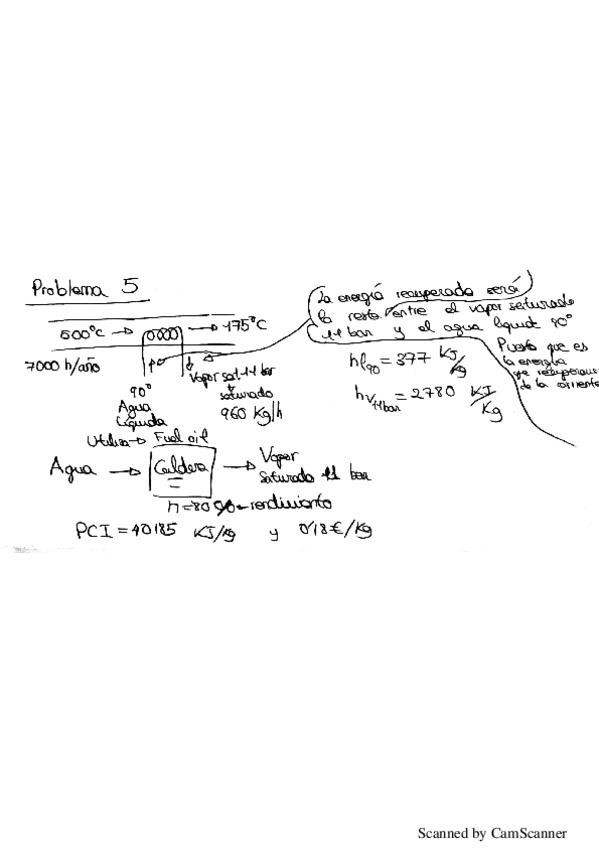 Problema 5
La energía recuperada será
la resta entre el vapor saturado
11 bar y el agua liquida 90°
Puesto que es
la energía
que recuperamos
de la corriente
500°C → → 175°C
7000 h/año
90°
Agua
Líquida
Vapor sat. 11 bar
saturado
960 Kg/h
hl90 = 377 KJ/Kg
hv11bar = 2780 KJ/Kg
Utiliza → Fuel oil
Agua → Caldera → Vapor
saturado 11 bar
η = 80 % → rendimiento
PCI = 40185 KJ/Kg y 0'18 €/Kg
Scanned by CamScanner